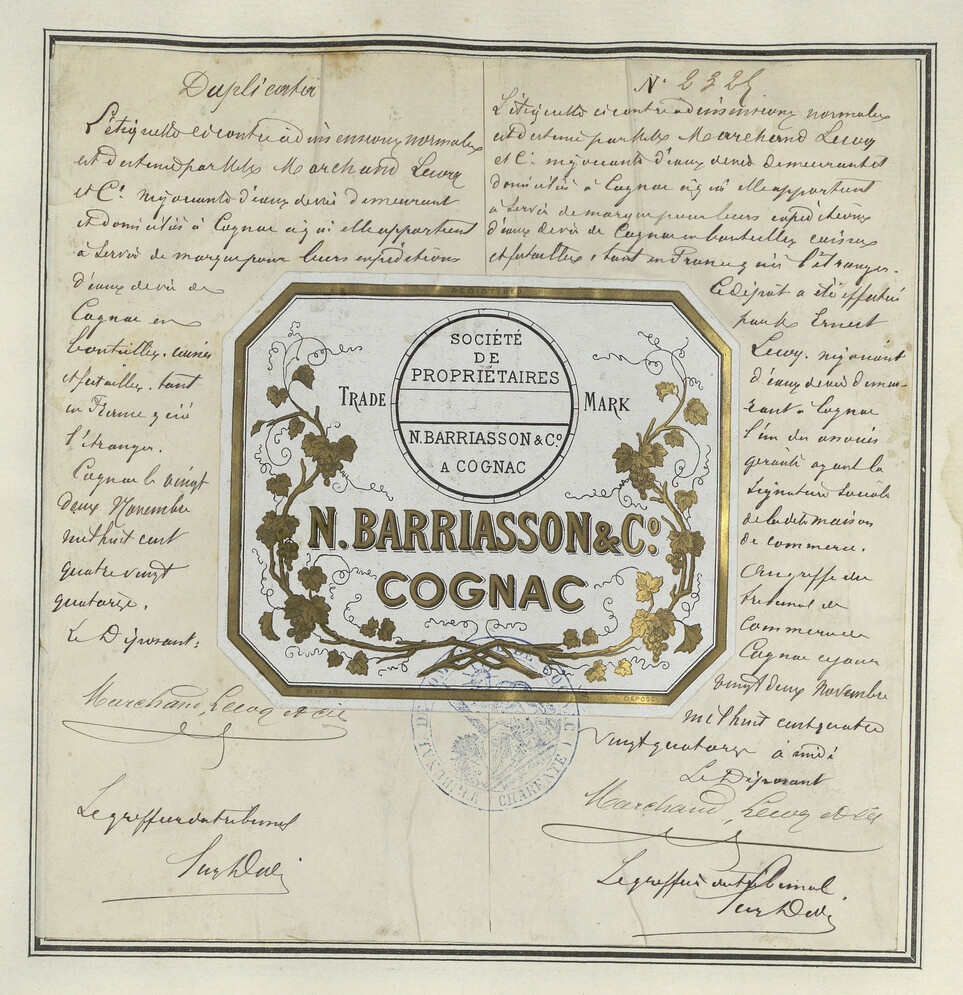 Duplicata
L'étiquette ci contre à dimensions normales
est destinée par MM. Marchand Lecoq
et Cie négociants d'eaux de vie demeurant
et domiciliés à Cognac à qui elle appartient
à servir de marque pour leurs expéditions
d'eaux de vie de
Cognac en
bouteilles, caisses
et futailles, tant
en France qu'à
l'étranger.
Cognac le vingt
deux Novembre
mil huit cent
quatre vingt
quatorze.
Le Déposant:
Marchand, Lecoq et Cie
Le greffier du tribunal
N° 2325
L'étiquette ci contre à dimensions normales
est destinée par MM. Marchand Lecoq
et Cie négociants d'eaux de vie demeurant et
domiciliés à Cognac à qui elle appartient
à servir de marque pour leurs expéditions
d'eaux de vie de Cognac en bouteilles caisses
et futailles, tant en France qu'à l'étranger.
Ce dépôt a été effectué
par M. Ernest
Lecoq, négociant
d'eaux de vie demeu-
rant à Cognac
l'un des associés
gérants ayant la
signature sociale
de la dite maison
de commerce.
Au greffe du
tribunal de
commerce de
Cognac ce jour
vingt deux Novembre
mil huit cent quatre
vingt quatorze à midi
Le Déposant
Marchand, Lecoq et Cie
Le greffier du tribunal
REGISTERED
SOCIÉTÉ
DE
PROPRIÉTAIRES
TRADE MARK
N. BARRIASSON & Cº
A COGNAC
N. BARRIASSON & Cº.
COGNAC
DÉPOSÉ
CHARENTE